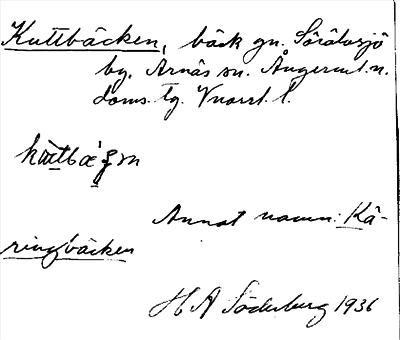 Kuttbäcken, bäck gn. Sörålasjö
by, Arnäs sn. Ångerml. n.
doms. tg. Vnorrl. l.
Annat namn: Kä-
ringbäcken
H A Söderberg 1936